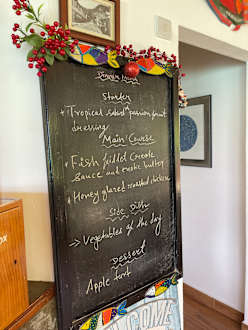 Dinner Menu
Starter
* Tropical salad * passion fruit
dressing
Main Course
* Fish fillet Creole
sauce and exotic butter
* Honey glazed roasted chicken
Side Dish
→ Vegetables of the day
Dessert
Apple tart
COME